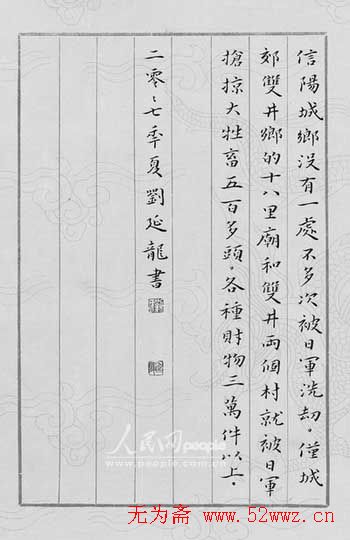 信陽城鄉没有一處不多次被日軍洗劫。僅城
郊雙井鄉的十八里廟和雙井兩個村就被日軍
搶掠大牲畜五百多頭。各種財物三萬件以上。
二零零七年夏劉延龍書
人民网 people
www.people.com.cn
无为斋 www.52wwz.cn